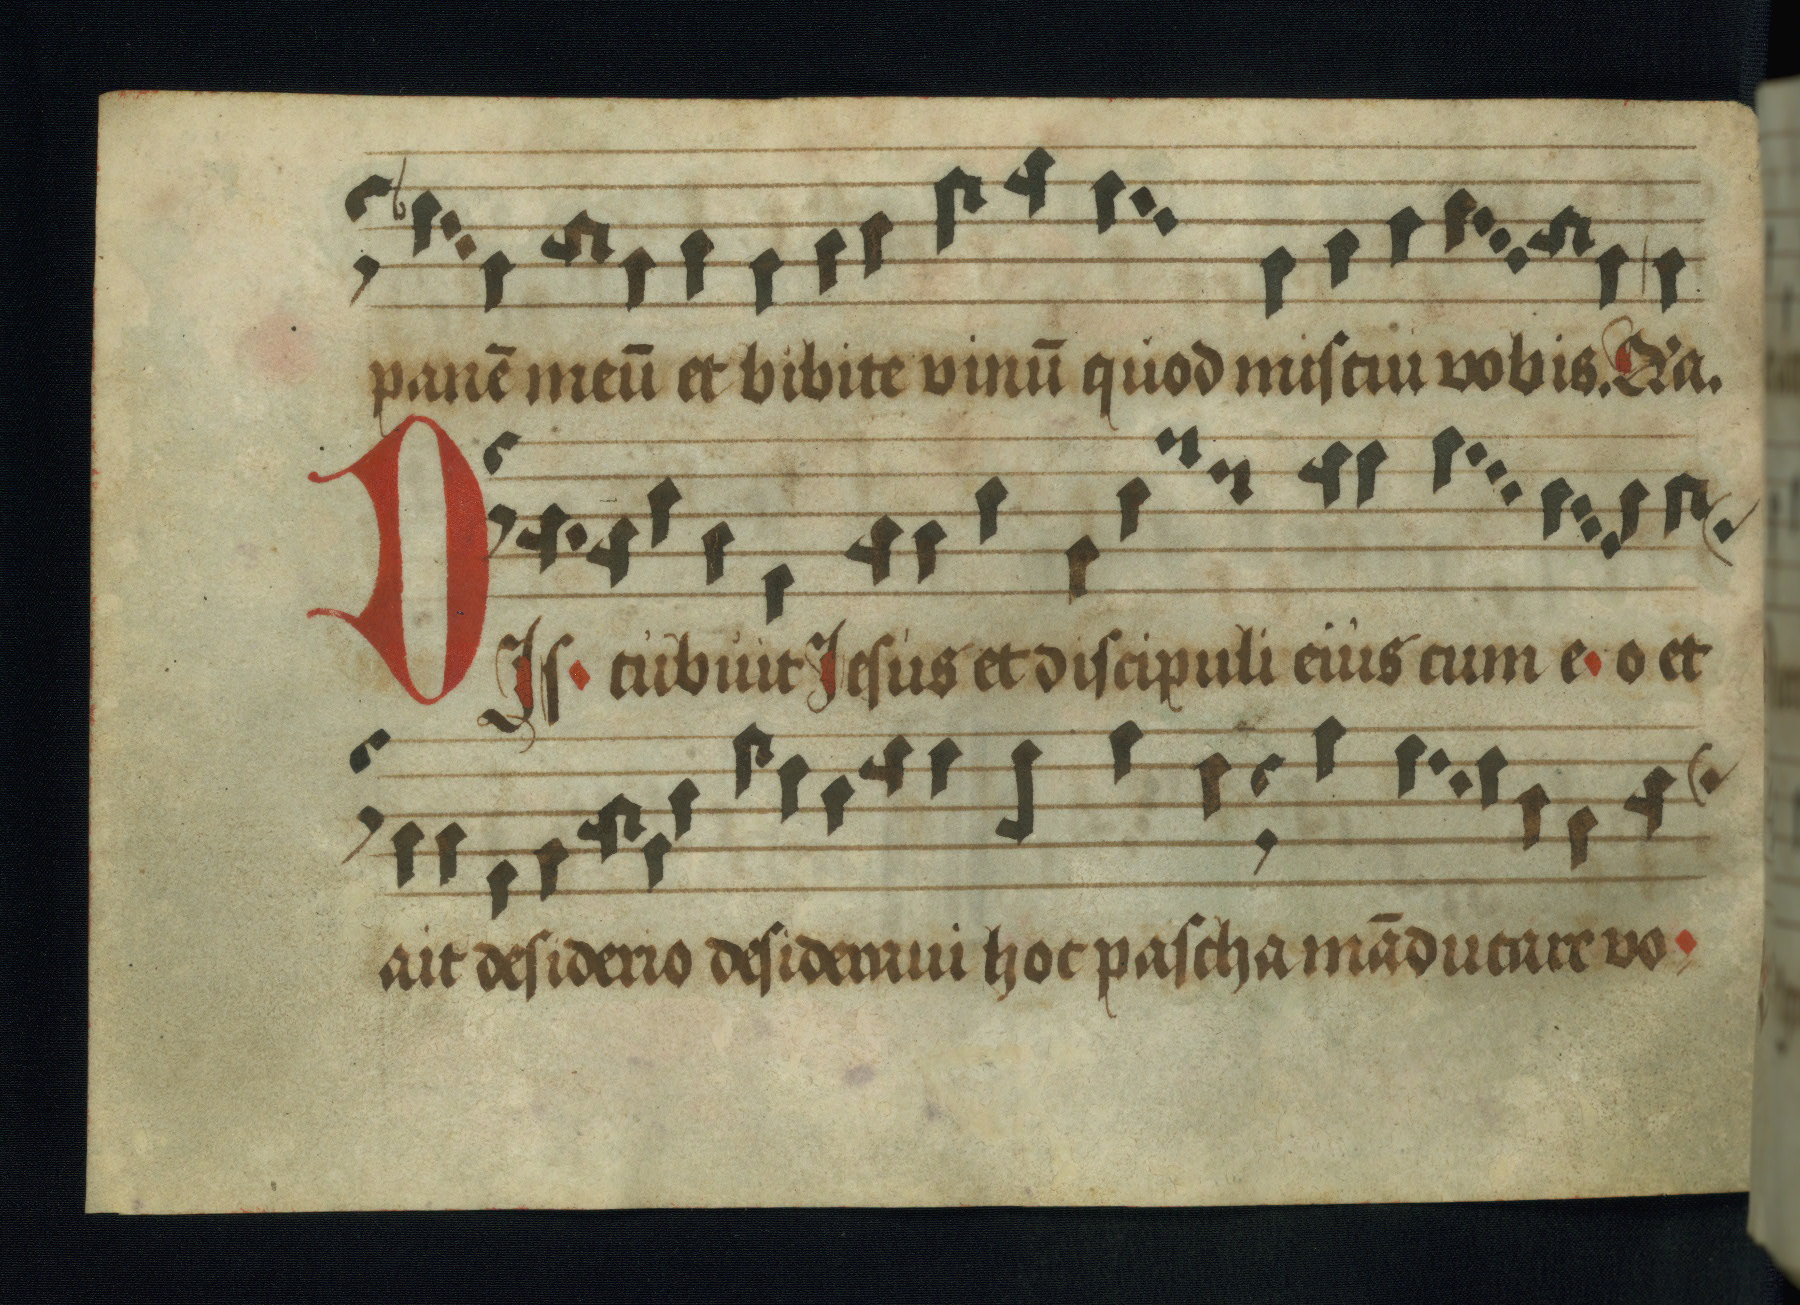 panē meū et bibite vinū quod miscui vobis. Ra.
DIs cubuit Iesus et discipuli eius cum e o et
ait desiderio desideraui hoc pascha māducare vo